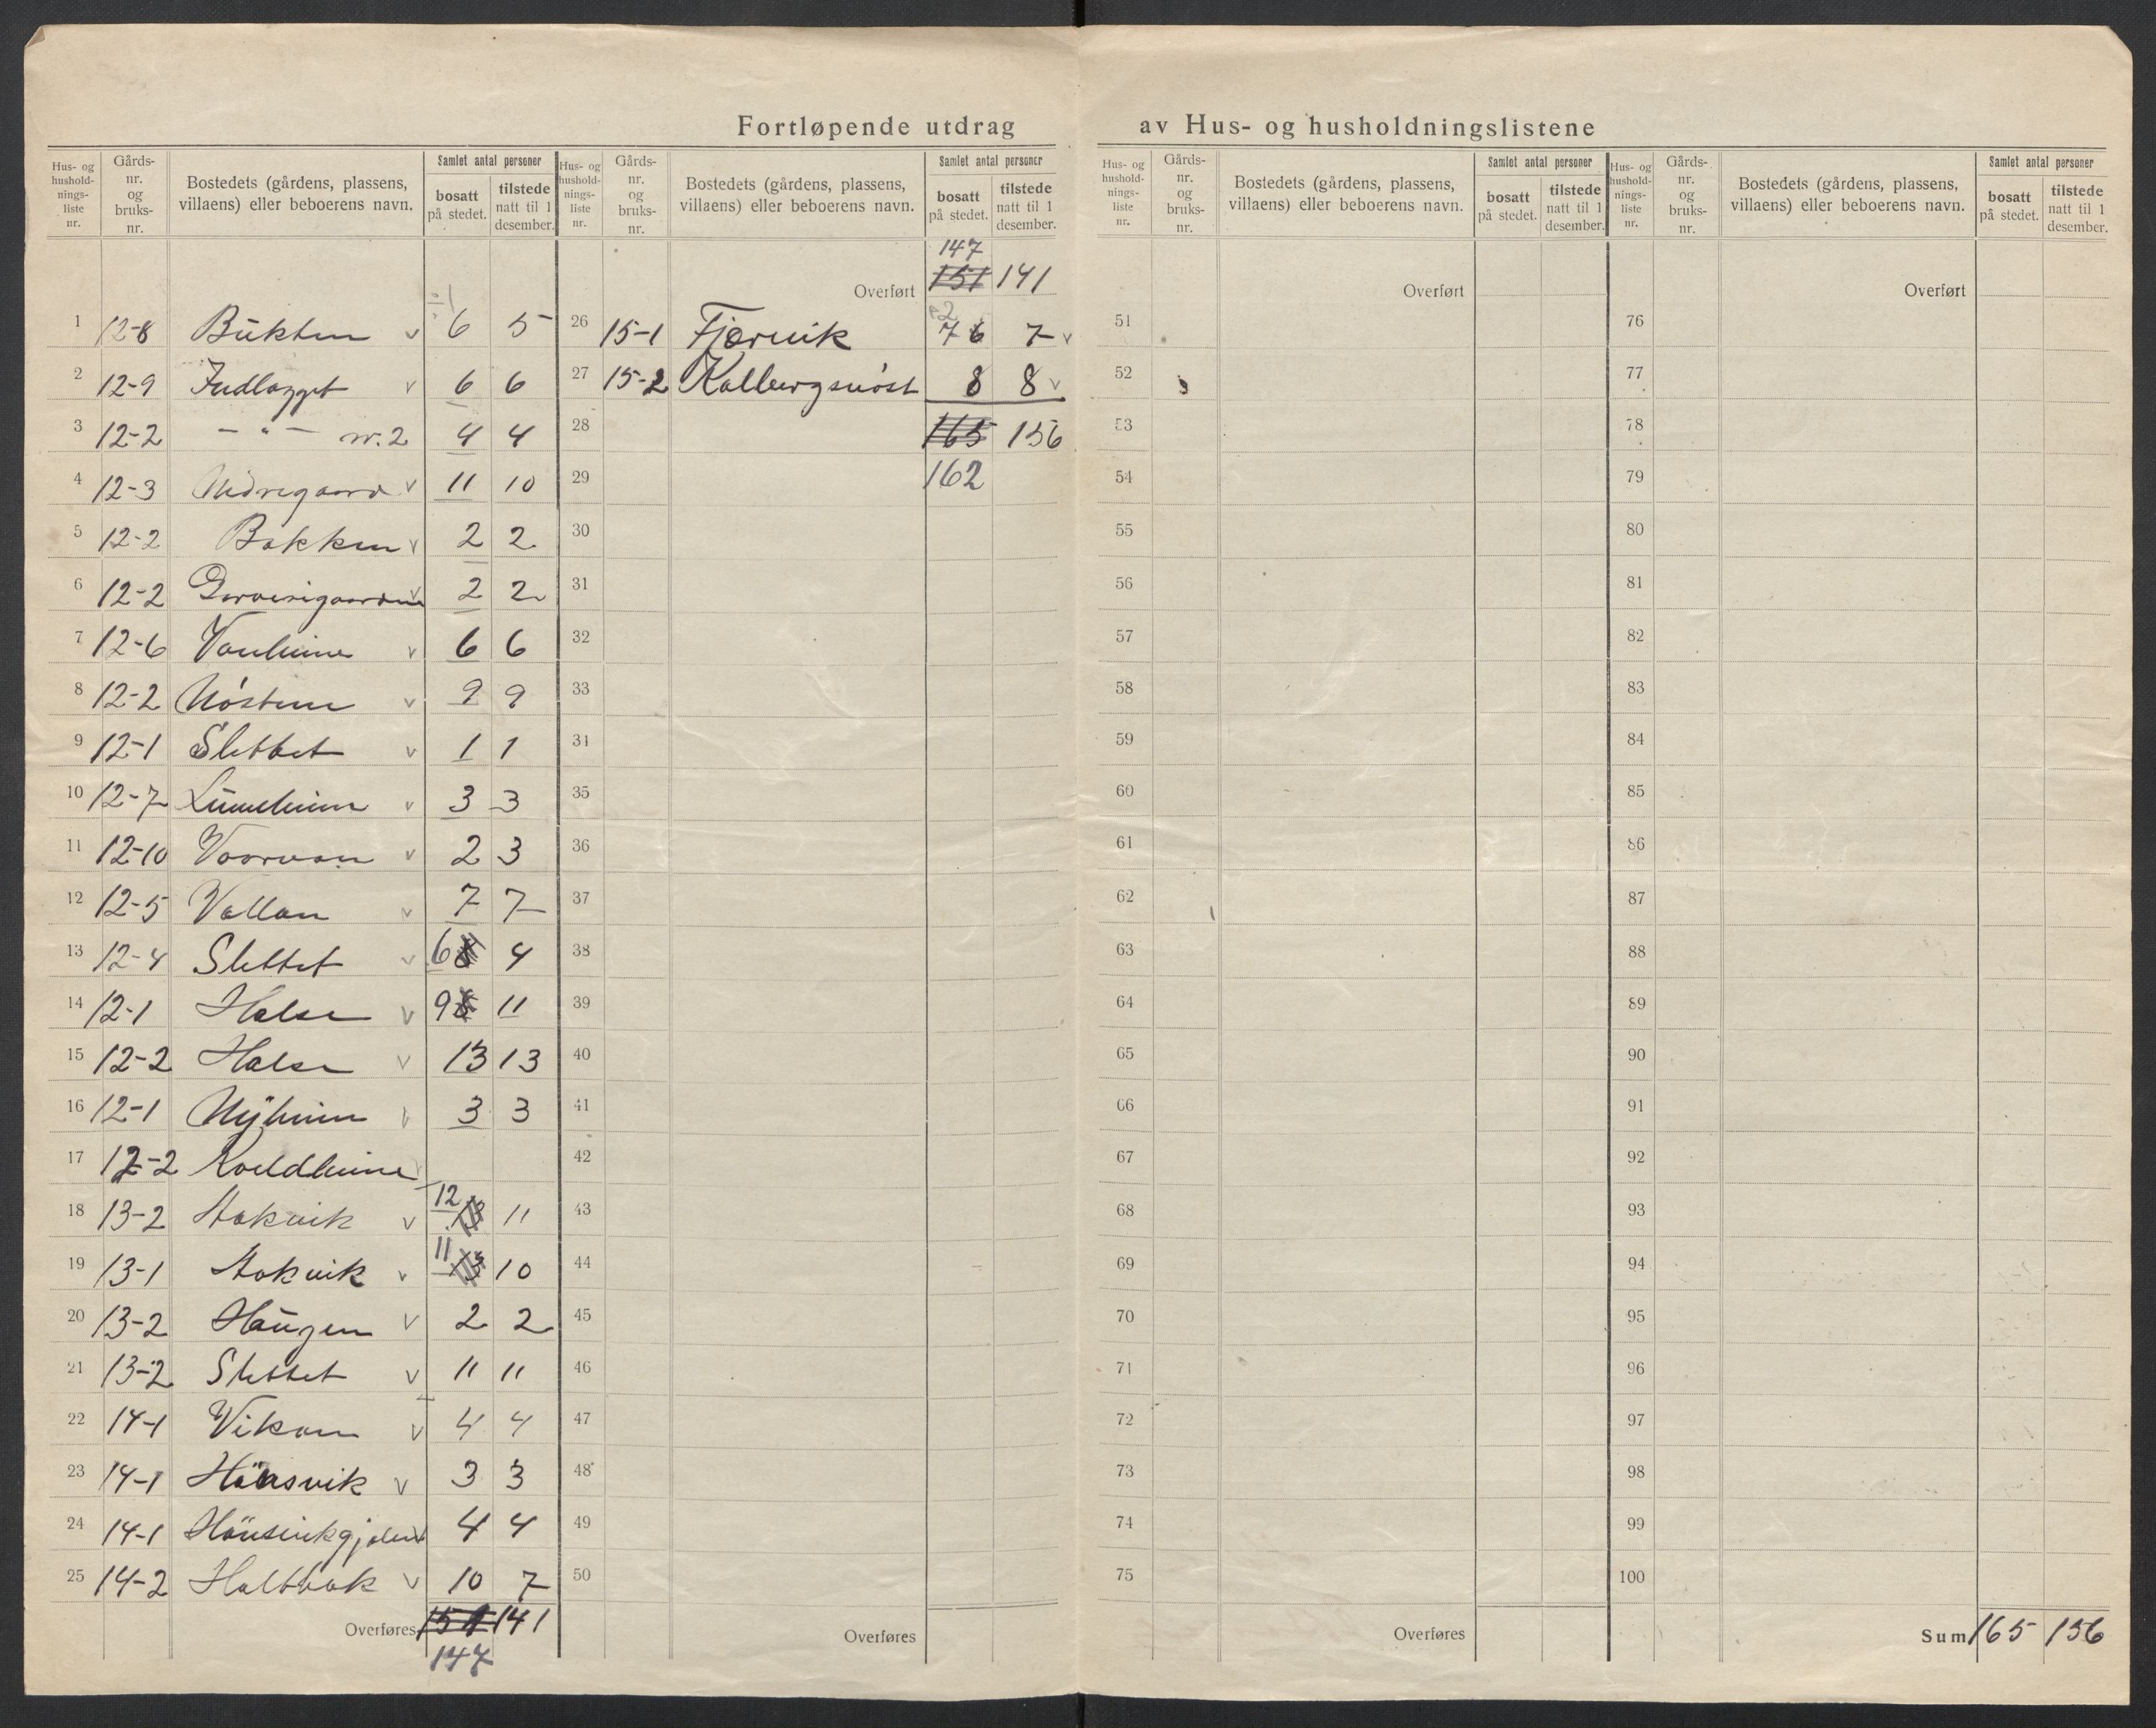 Fortløpende utdrag av Hus- og husholdningslistene
Hus- og husholdnings-liste nr. Gårds-nr. og bruks-nr. Bostedets (gårdens, plassens, villaens) eller beboerens navn. Samlet antal personer bosatt på stedet. tilstede natt til 1 desember.
1 12-8 Bükten v 6 5
2 12-9 Indlægget v 6 6
3 12-2 — " — nr. 2 4 4
4 12-3 Nidregaard v 11 10
5 12-2 Bakken v 2 2
6 12-2 v 2 2
7 12-6 Vonheim v 6 6
8 12-2 Nøsten v 9 9
9 12-1 Slettet v 1 1
10 12-7 v 3 3
11 12-10 Voorvon v 2 3
12 12-5 Vollan v 7 7
13 12-4 Slettet v 6 8 4
14 12-1 Halse v 9 8 11
15 12-2 Halse v 13 13
16 12-1 Nÿheim v 3 3
17 12-2 Kveldheim
18 13-2 Stokvik v 12 13 11
19 13-1 Stokvik v 11 13 10
20 13-2 Haügen v 2 2
21 13-2 Slettet v 11 11
22 14-1 Vikan v 4 4
23 14-1 Hönsvik v 3 3
24 14-1 4 4
25 14-2 Holtbak v 10 7
Overføres 151 141
147
Hus- og husholdnings-liste nr. Gårds-nr. og bruks-nr. Bostedets (gårdens, plassens, villaens) eller beboerens navn. Samlet antal personer bosatt på stedet. tilstede natt til 1 desember.
147
Overført 151 141
26 15-1 Fjærvik 7 6 7 v
27 15-2 Kalbergsnøst 8 8 v
28 165 156
29 162
30
31
32
33
34
35
36
37
38
39
40
41
42
43
44
45
46
47
48
49
50
Overføres
Hus- og husholdnings-liste nr. Gårds-nr. og bruks-nr. Bostedets (gårdens, plassens, villaens) eller beboerens navn. Samlet antal personer bosatt på stedet. tilstede natt til 1 desember.
Overført
51
52
53
54
55
56
57
58
59
60
61
62
63
64
65
66
67
68
69
70
71
72
73
74
75
Overføres
Hus- og husholdnings-liste nr. Gårds-nr. og bruks-nr. Bostedets (gårdens, plassens, villaens) eller beboerens navn. Samlet antal personer bosatt på stedet. tilstede natt til 1 desember.
Overført
76
77
78
79
80
81
82
83
84
85
86
87
88
89
90
91
92
93
94
95
96
97
98
99
100
Sum 165 156